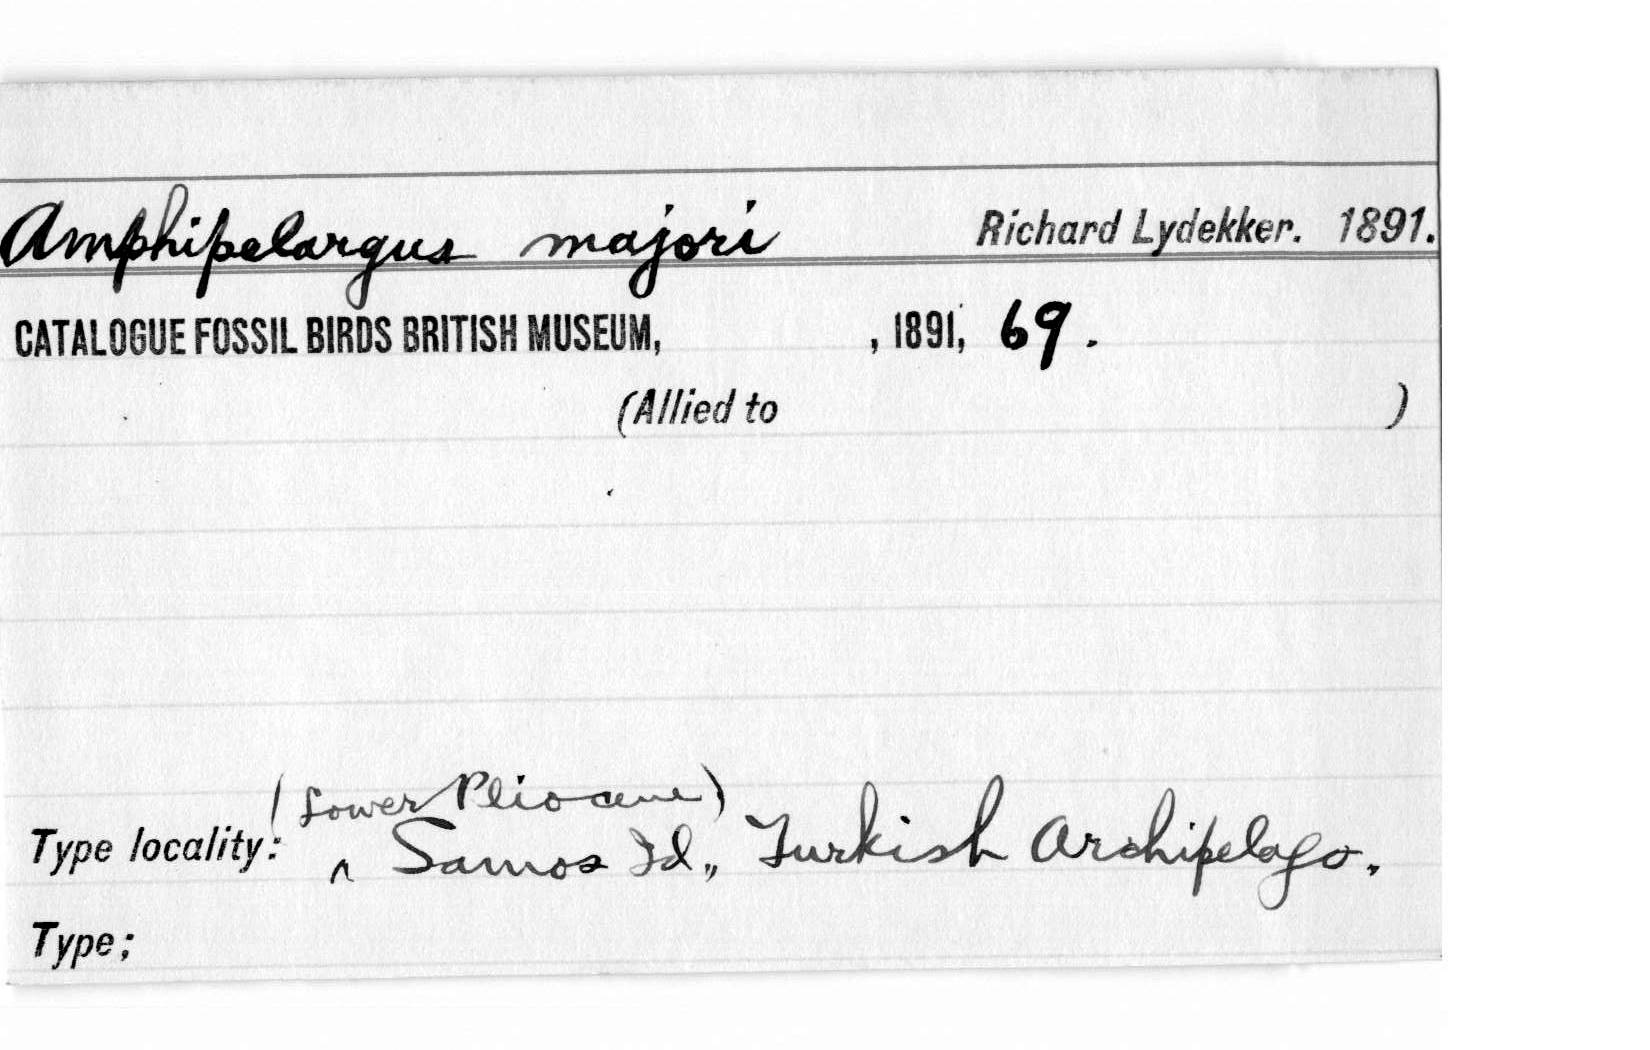 Amphipelargus majori Richard Lydekker. 1891.
CATALOGUE FOSSIL BIRDS BRITISH MUSEUM, , 1891, 69.
(Allied to )
(Lower Pliocene)
Type locality: ^ Samos Id., Turkish Archipelago.
Type;